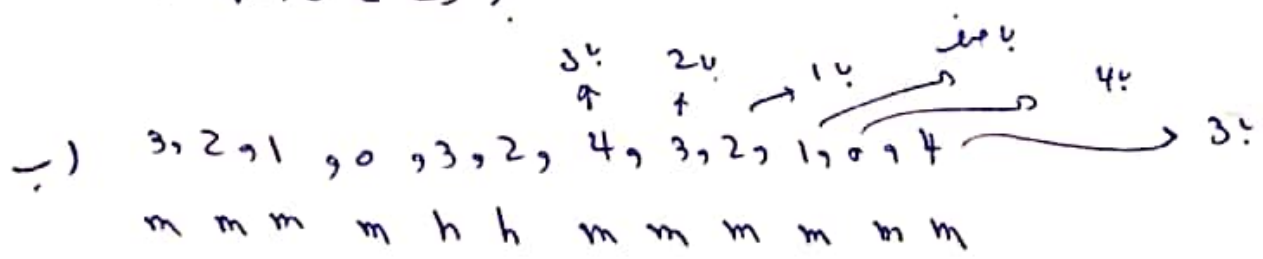 با 3 با 2 با 1 با صفر با 4 با 3
ب) 3, 2, 1, 0, 3, 2, 4, 3, 2, 1, 0, 4
m m m m h h m m m m m m